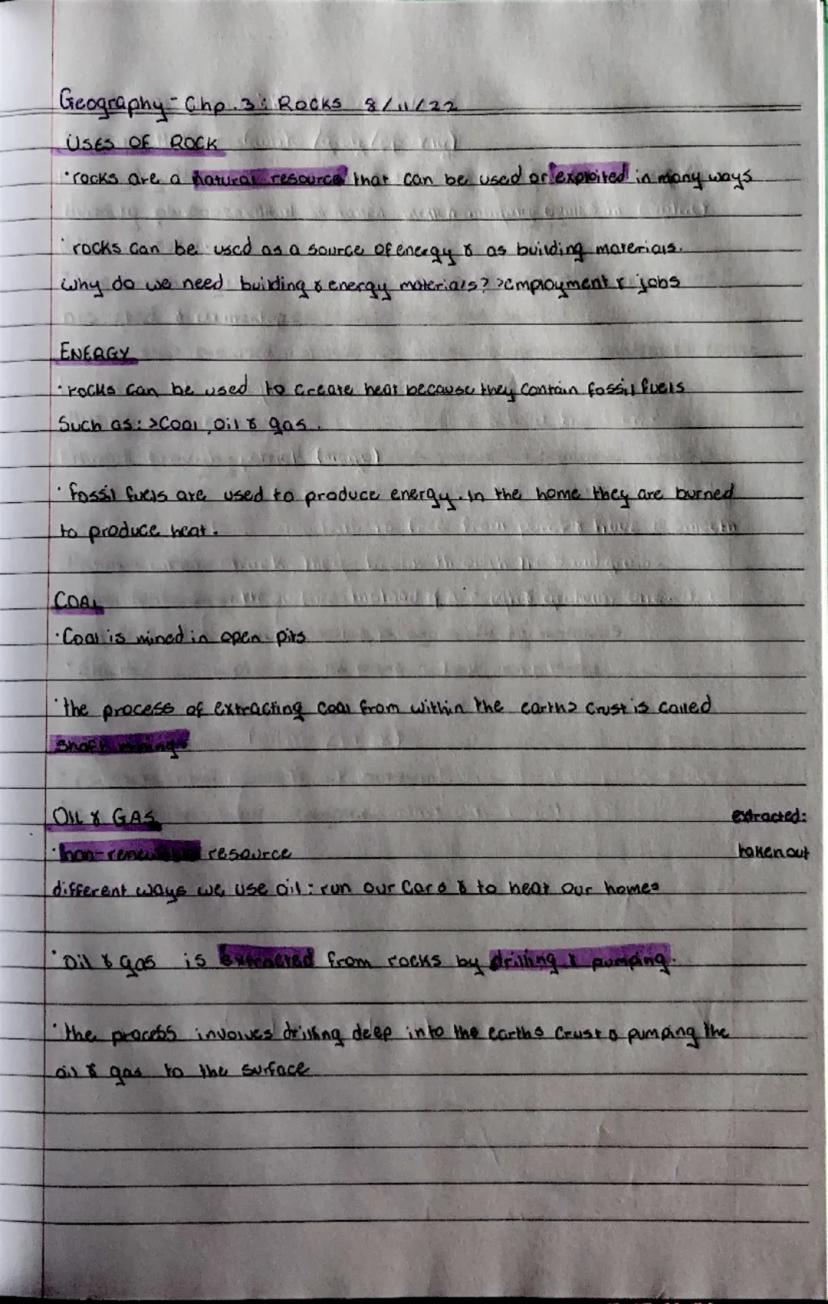 Geography - Chp. 3: Rocks 8/11/22
USES OF ROCK
·rocks are a natural resource that can be used or exploited in many ways
·rocks can be used as a source of energy & as building materials.
Why do we need building & energy materials? >employment & jobs
ENERGY
·rocks can be used to create heat because they contain fossil fuels
Such as: >Coal, Oil & gas.
·fossil fuels are used to produce energy. In the home they are burned
to produce heat.
COAL
·Coal is mined in open pits
·the process of extracting coal from within the earths crust is called
shaft mining
OIL & GAS
extracted:
·non-renewable resource
taken out
different ways we use oil: run our cars & to heat our homes
·Oil & gas is extracted from rocks by drilling & pumping.
·the process involves drilling deep into the earths crust & pumping the
oil & gas to the surface